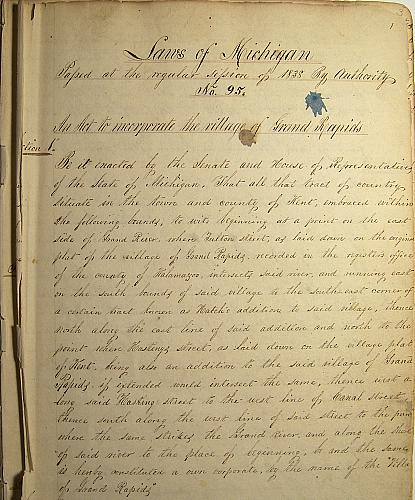 Laws of Michigan
Passed at the regular session of 1838 By Authority
No. 95.
An Act to incorporate the village of Grand Rapids
tion 1.
Be it enacted by the Senate and House of Representatives
of the State of Michigan, That all that tract of country
situate in the town and county of Kent, embraced within
the following bounds, to wit, beginning at a point on the east
side of Grand River, where Fulton street, as laid down on the original
plat of the village of Grand Rapids, recorded in the registers office
of the county of Kalamazoo, intersects said river, and running east
on the south bounds of said village to the southeast corner of
a certain tract known as Hatch's addition to said village, thence
north along the east line of said addition and north to the
point where Hastings street, as laid down on the village plat
of Kent, being also an addition to the said village of Grand
Rapids, if extended would intersect the same, thence west a
long said Hastings street to the west line of Canal street,
thence south along the west line of said street to the point
where the same strikes the Grand River, and along the shore
of said river to the place of beginning, be and the same
is hereby constituted a town corporate, by the name of the Villa
of Grand Rapids"